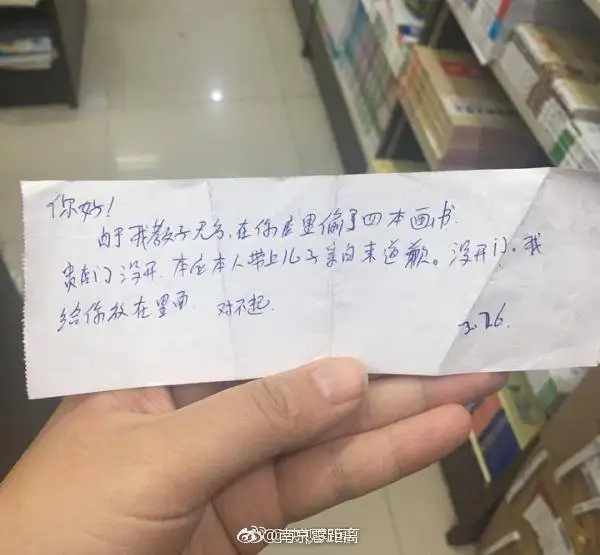 你好！
由于我教子无方，在你店里偷了四本画书．
贵店门没开．本应本人带上儿子亲自来道歉。没开门．我
给你放在里面．对不起．
3.26.
@南京零距离